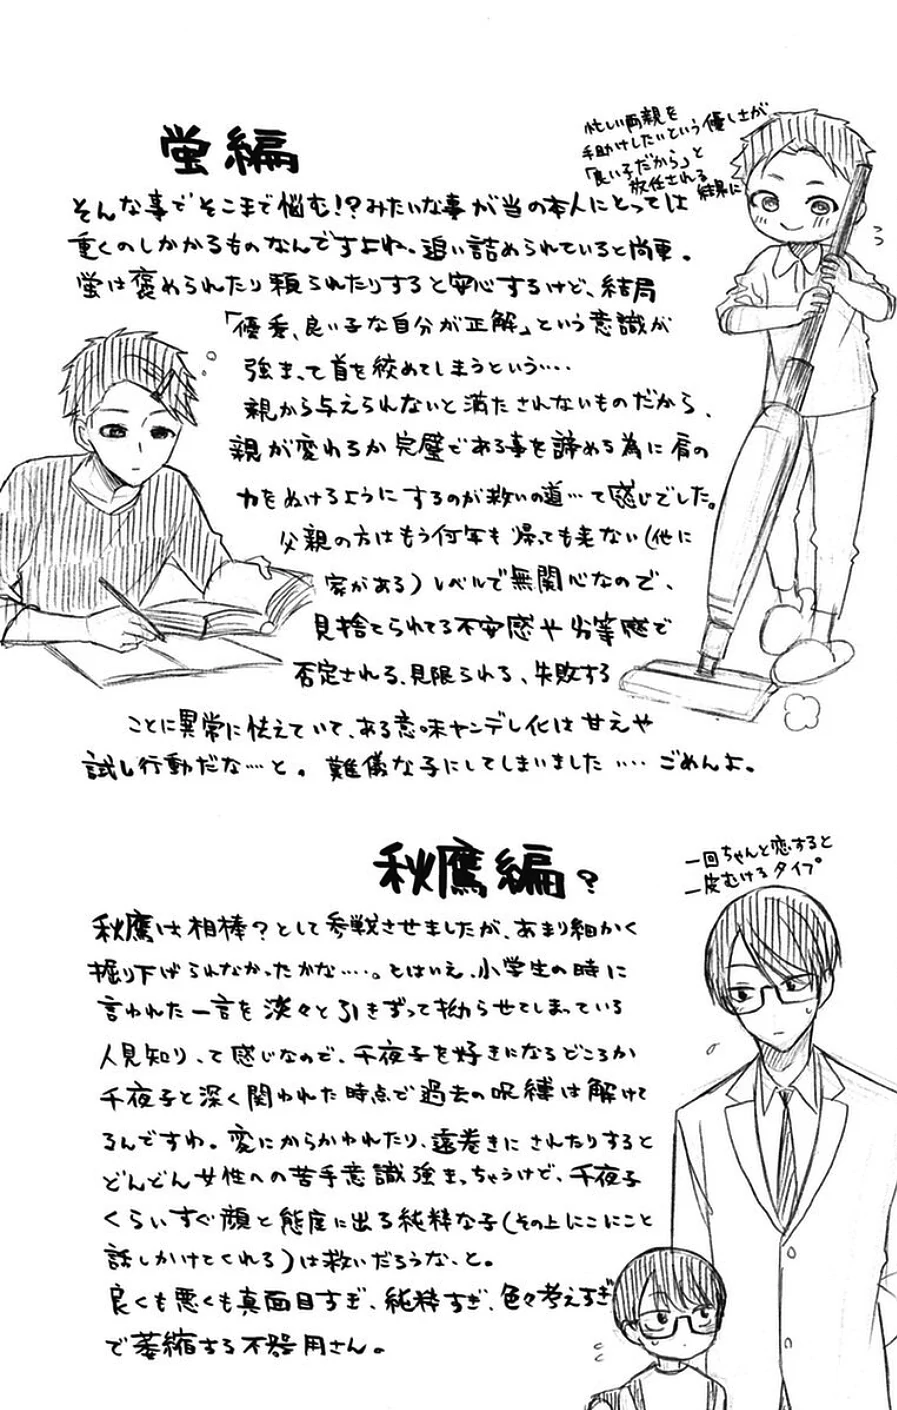 蛍編
忙しい両親を
手助けしたいという優しさが
「良い子だから」と
放任される
結果に
そんな事でそこまで悩む!?みたいな事が当の本人にとっては
重くのしかかるものなんですよね。追い詰められていると尚更。
蛍は褒められたり頼られたりすると安心するけど、結局
「優秀、良い子な自分が正解」という意識が
強まって首を絞めてしまうという‥‥
親から与えられないと満たされないものだから、
親が変わるか完璧である事を諦める為に肩の
力をぬけるようにするのが救いの道…って感じでした。
父親の方はもう何年も帰っても来ない(他に
家がある)レベルで無関心なので、
見捨てられてる不安感や劣等感で
否定される、見限られる、失敗する
ことに異常に怯えていて、ある意味ヤンデレ化は甘えや
試し行動だな…と。難儀な子にしてしまいました‥‥ごめんよ。
秋鷹編?
一回ちゃんと恋すると
一皮むけるタイプ
秋鷹は相棒?として参戦させましたが、あまり細かく
掘り下げられなかったかな‥‥。とはいえ、小学生の時に
言われた一言を淡々と引きずって拗らせてしまっている
人見知りって感じなので、千夜子を好きになるどころか
千夜子と深く関われた時点で過去の呪縛は解けて
るんですわ。変にからかわれたり、遠巻きにされたりすると
どんどん女性への苦手意識強まっちゃうけど、千夜子
くらいすぐ顔と態度に出る純粋な子(その上にこにこと
話しかけてくれる)は救いだろうな…と。
良くも悪くも真面目すぎ、純粋すぎ、色々考えすぎ
で萎縮する不器用さん。